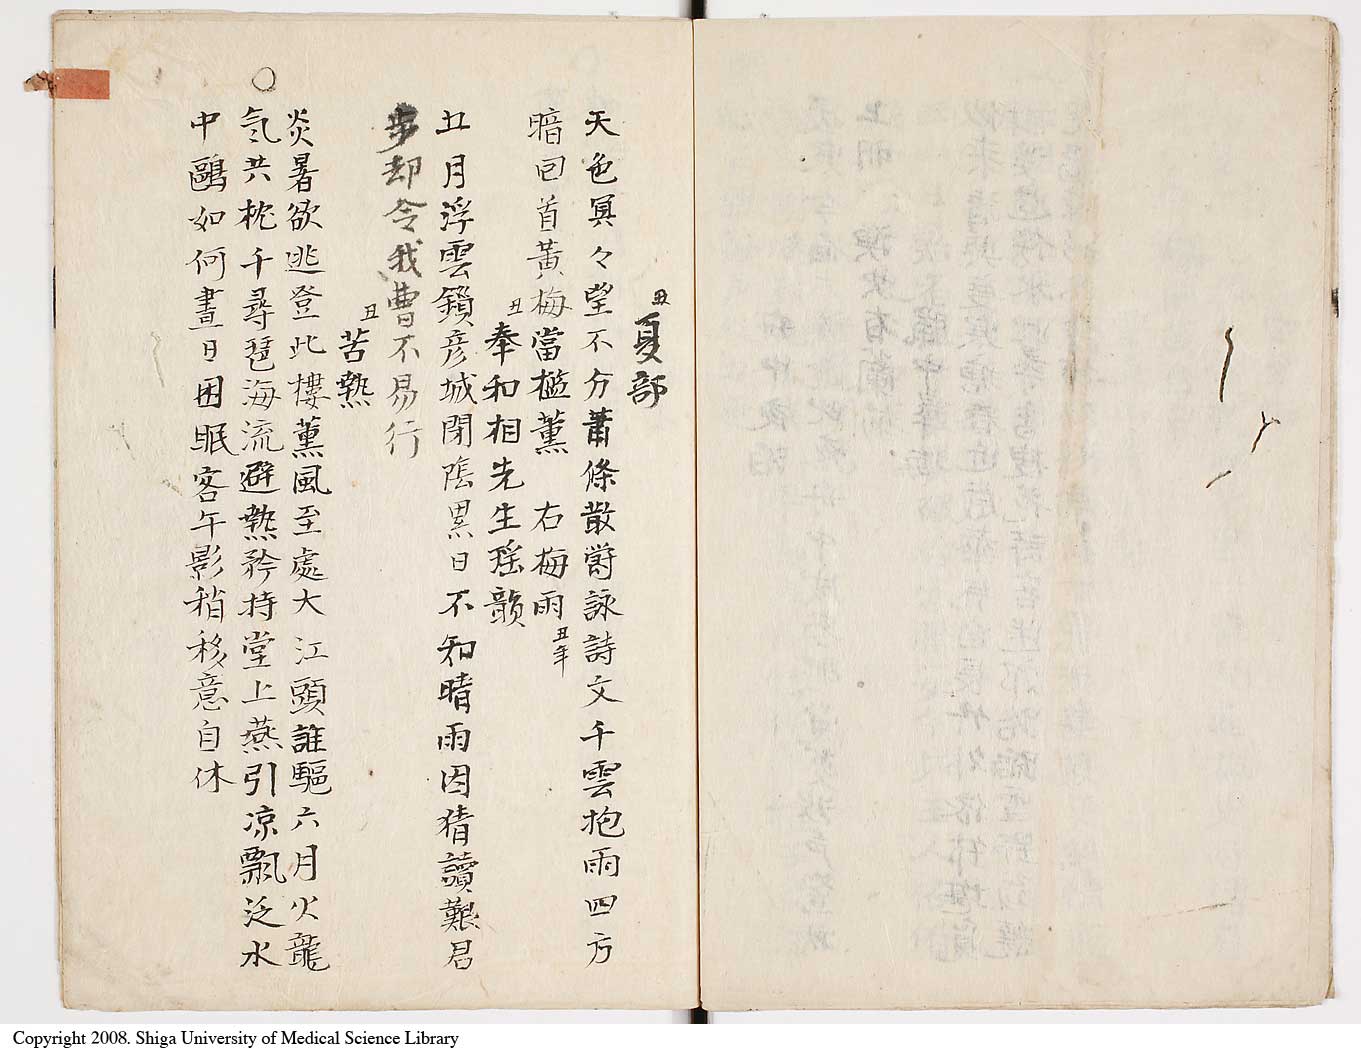 丑 夏部
天色冥々望不分蕭條散欝詠詩文千雲抱雨四方
暗回首黃梅當檻薫 右梅雨 丑年
丑 奉和相先生瑤韻
五月浮雲鎖彦城閉陰累日不知晴雨因猜讀艱君
歩却令我曹不易行
丑 苦熱
炎暑欲逃登此樓薫風至處大江頭誰驅六月火龍
氣共枕千尋琶海流避熱矜持堂上燕引凉飄泛水
中鷗如何晝日困眠客午影稍移意自休
Copyright 2008. Shiga University of Medical Science Library